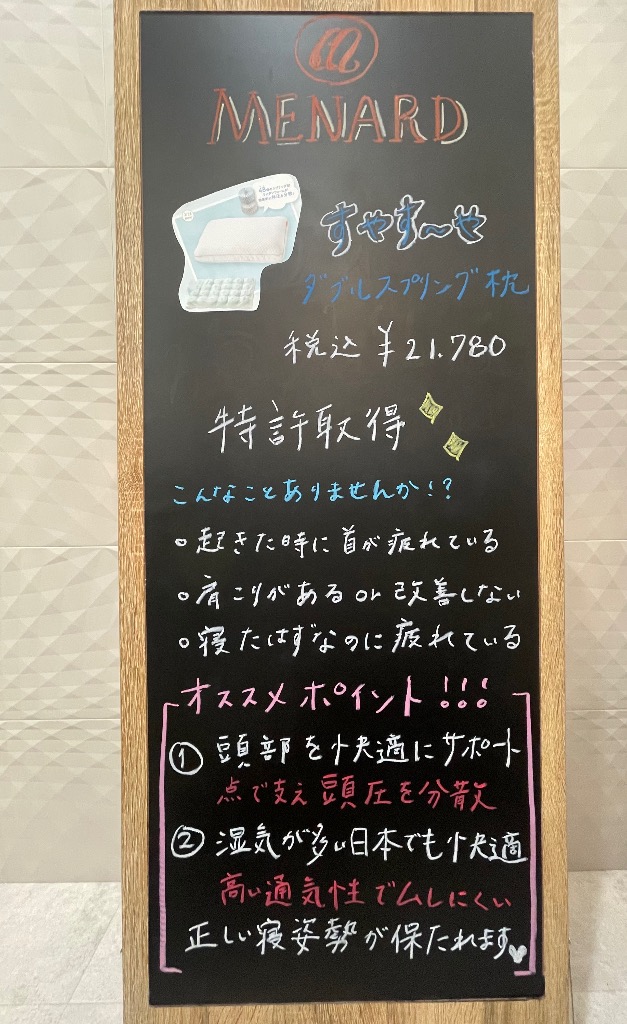 m
MENARD
すやす〜や
ダブルスプリング枕
税込 ¥21.780
特許取得
こんなことありませんか!?
○起きた時に首が疲れている
○肩こりがあるor改善しない
○寝たはずなのに疲れている
オススメポイント!!!
① 頭部を快適にサポート
点で支え頭圧を分散
② 湿気が多い日本でも快適
高い通気性でムレにくい
正しい寝姿勢が保たれます